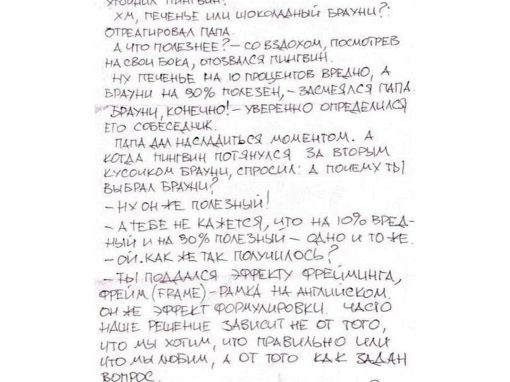 уточнил пингвин.
Хм, печенье или шоколадный брауни?:
отреагировал папа.
А что полезнее? – со вздохом, посмотрев
на свои бока, отозвался пингвин.
Ну печенье на 10 процентов вредно, а
брауни на 90% полезен, – засмеялся папа.
Брауни, конечно! – уверенно определился
его собеседник.
Папа дал насладиться моментом. А
когда пингвин потянулся за вторым
кусочком брауни, спросил: а почему ты
выбрал брауни?
– Ну он же полезный!
– А тебе не кажется, что на 10% вред-
ный и на 90% полезный – одно и то же.
– Ой. Как же так получилось?
– Ты поддался эффекту фрейминга,
фрейм (frame) – рамка на английском.
Он же эффект формулировки. Часто
наше решение зависит не от того,
что мы хотим, что правильно или
что мы любим, а от того как задан
вопрос.